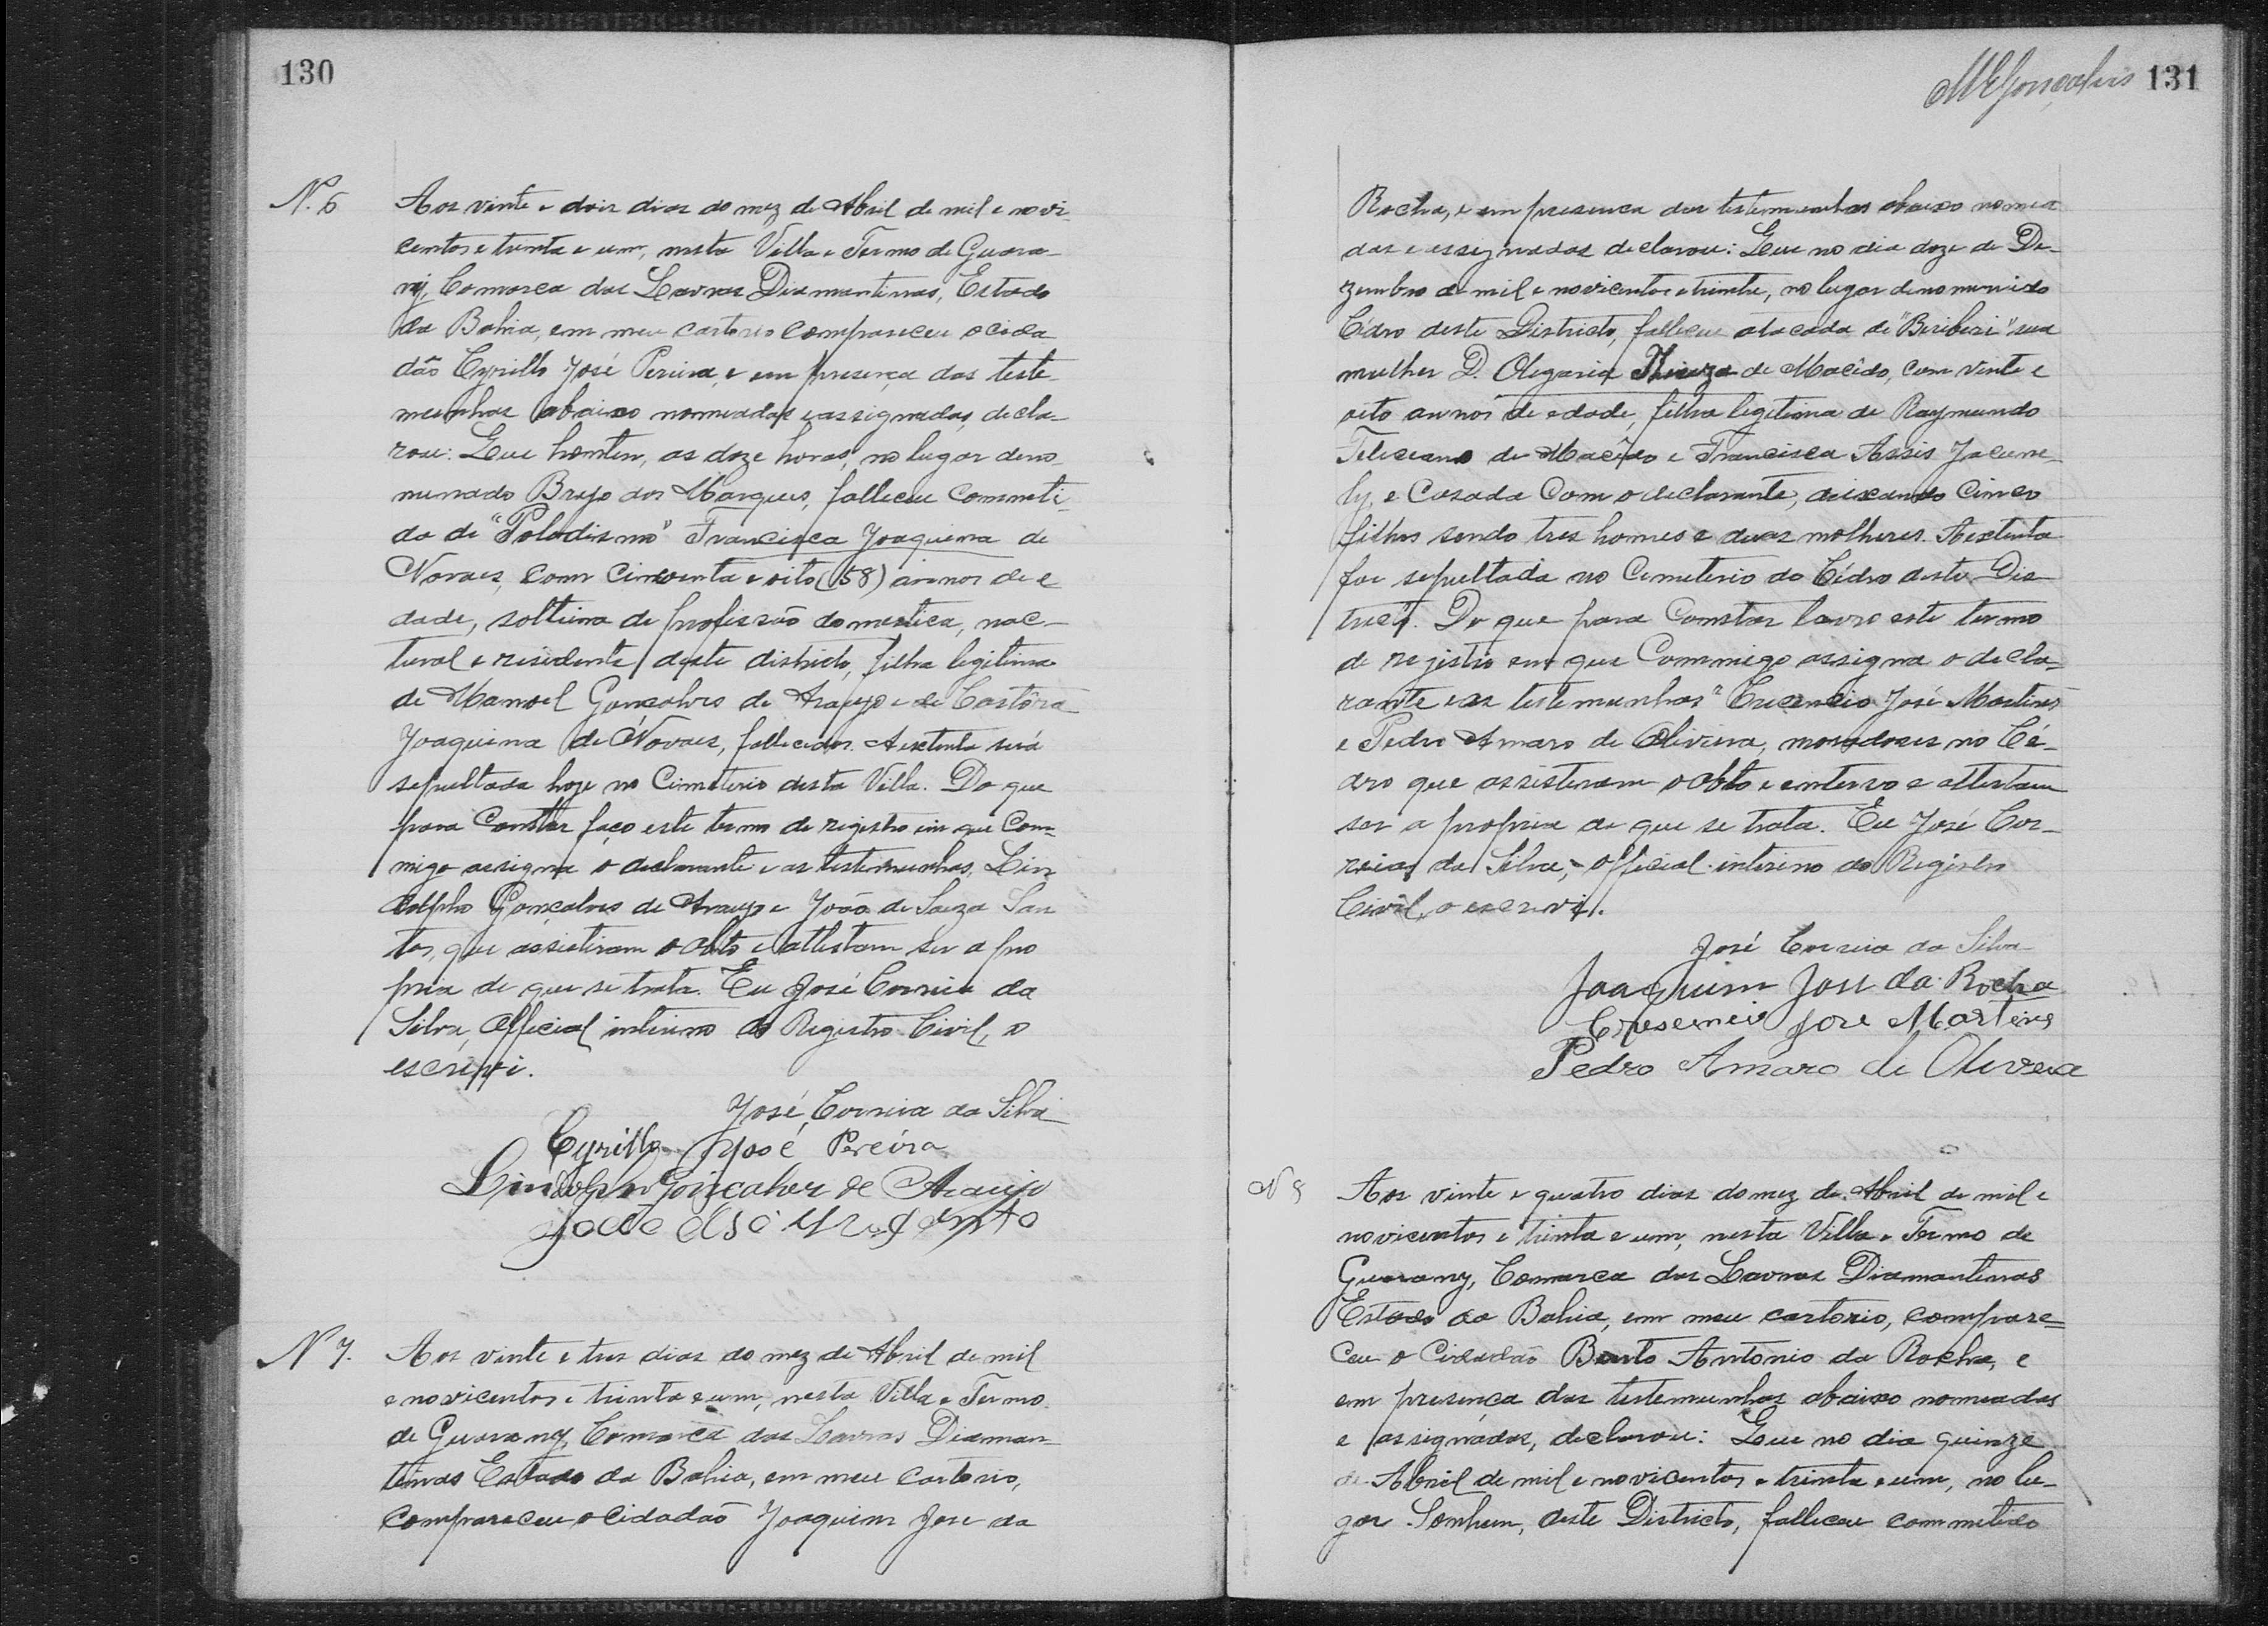 130
N. 6
Aos vinte e dois dias do mez de Abril de mil e novi-
centos e trinta e um, nesta Villa e Termo de Guara-
ny, Comarca das Lavras Diamantinas, Estado
da Bahia, em meu cartorio compareceu o cida
dão Cyrillo José Pereira, e em presença das teste-
munhas abaixo nomeadas e assignadas, decla-
rou: Que hontem, as doze horas, no lugar deno-
minado Brejo dos Marques, falleceu commeti-
da de "Paludismo" Francisca Joaquina de
Novaes, com cincoenta e oito (58) annos de e
dade, solteira de profissão domestica, nac-
tural e residente deste districto, filha legitima
de Manoel Gonçalves de Araujo e de Castôra
Joaquina de Novaes, fallecidos. A extenta será
sepultada hoje no Cimeterio desta Villa. Do que
para constar faço este termo de registro em que com-
migo assigna o declarante e as testemunhas, Lin
dolpho Gonçalves de Araujo e João de Souza San
tos, que assistiram o obto e attestam ser a pro
pria de que se trata. Eu José Correia da
Silva, Official interino do Registro Civil, o
escrevi.
José Correia da Silva
Cyrillo José Pereira
Lindolpho Gonçalves de Araujo
N 7.
Aos vinte e tres dias do mez de Abril de mil
e novicentos e trinta e um, nesta Villa e Termo
de Guarany, Comarca das Lavras Diaman-
tinas Estado da Bahia, em meu cartorio,
compareceu o cidadão Joaquim José da
MEGonçalves 131
Rocha, e em presença das testemunhas abaixo nomea
das e assignadas declarou: Que no dia doze de De-
zembro de mil e novicentos e trinta, no lugar denominado
Cédro deste Districto, falleceu atacada de "Beriberi" sua
mulher D. Olegaria de Macêdo, com vinte e
oito annos de edade, filha legitima de Raymundo
Feleceano de Macêdo e Francisca Assis Jacune-
ly, e casada com o declarante, deixando cinco
filhos sendo tres homes e duas molheres. A extenta
foi sepultada no Cemeterio do Cédro deste Dis-
tricto. Do que para constar lavro este termo
de registro em que commigo assigna o decla-
rante e as testemunhas Crecencio José Martins
e Pedro Amaro de Oliveira, moradores no Cé-
dro que assisteram o obto e enterro e attestam
ser a propria de que se trata. Eu José Cor-
reia da Silva, Official interino do Registro
Civil, o escrevi.
José Correia da Silva
Joaquim José da Rocha
Cresencio Jose Martins
Pedro Amaro de Oliveira
N 8
Aos vinte e quatro dias do mez de Abril de mil e
novicentos e trinta e um, nesta Villa e Termo de
Guarany, Comarca das Lavras Diamantinas
Estado da Bahia, em meu cartorio, compare-
ceu o Cidadão Bento Antonio da Rocha, e
em presença das testemunhas abaixo nomeadas
e assignadas, declarou: Que no dia quinze
de Abril de mil e novicentos e trinta e um, no lu-
gar Sonhem, deste Districto, falleceu commetido